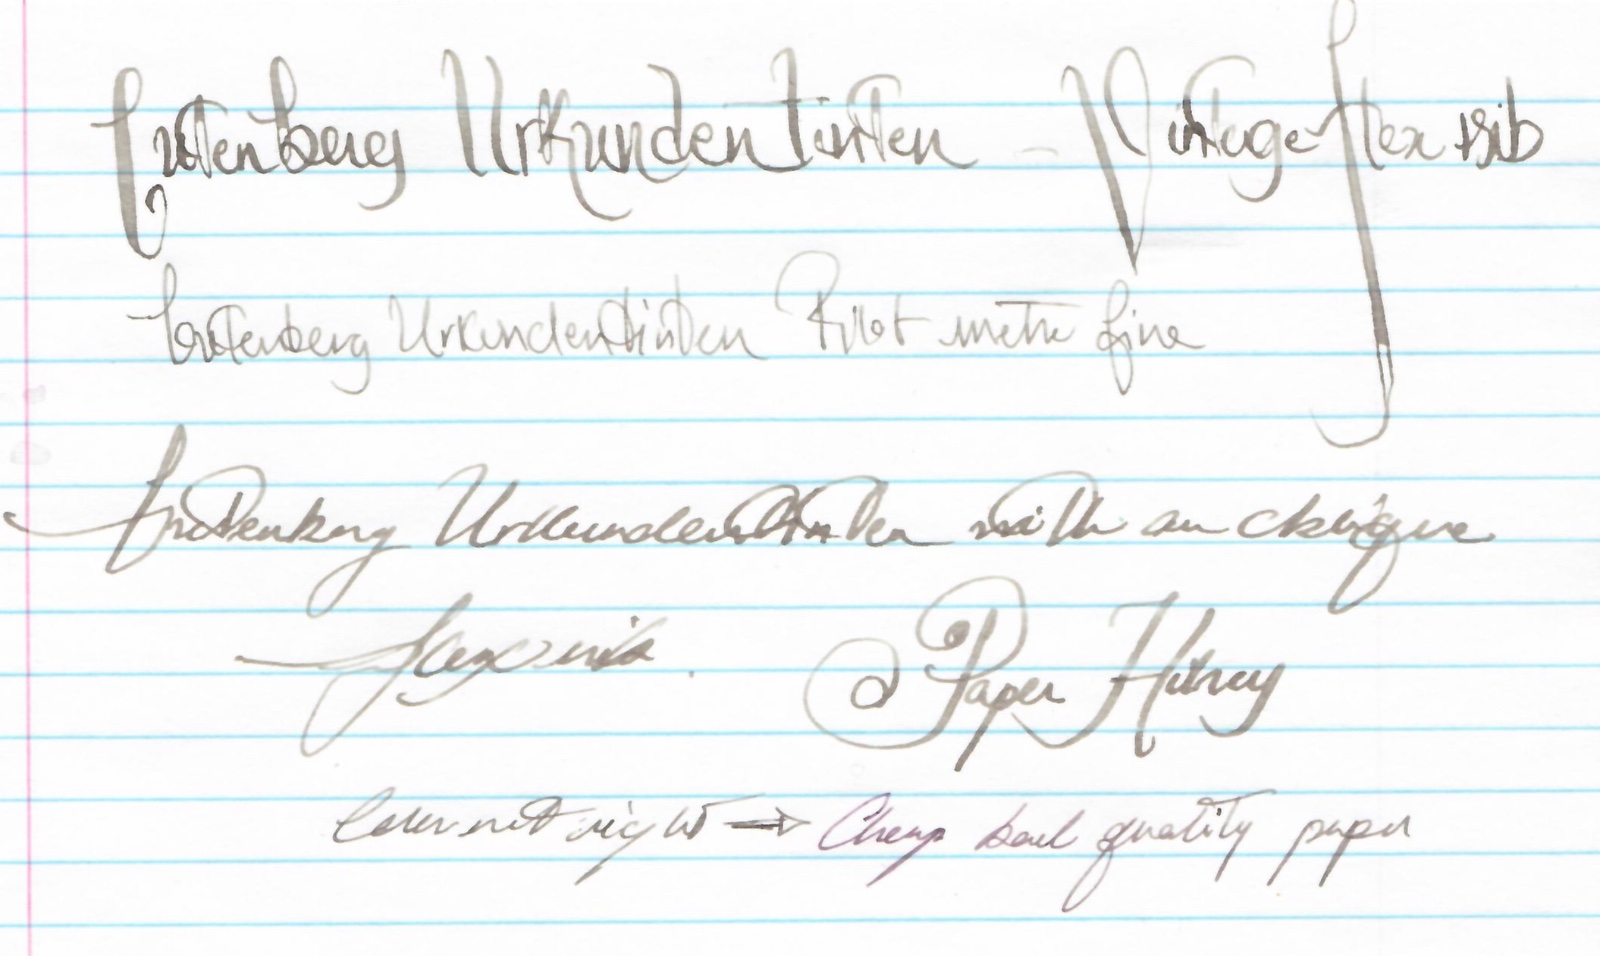 Gutenberg Urkundentinten - Vintage flex nib
Gutenberg Urkundentinten Pilot metro fine
Gutenberg Urkundentinten with an antique
flex nib.
@ Paper
not right → Cheap bad quality paper